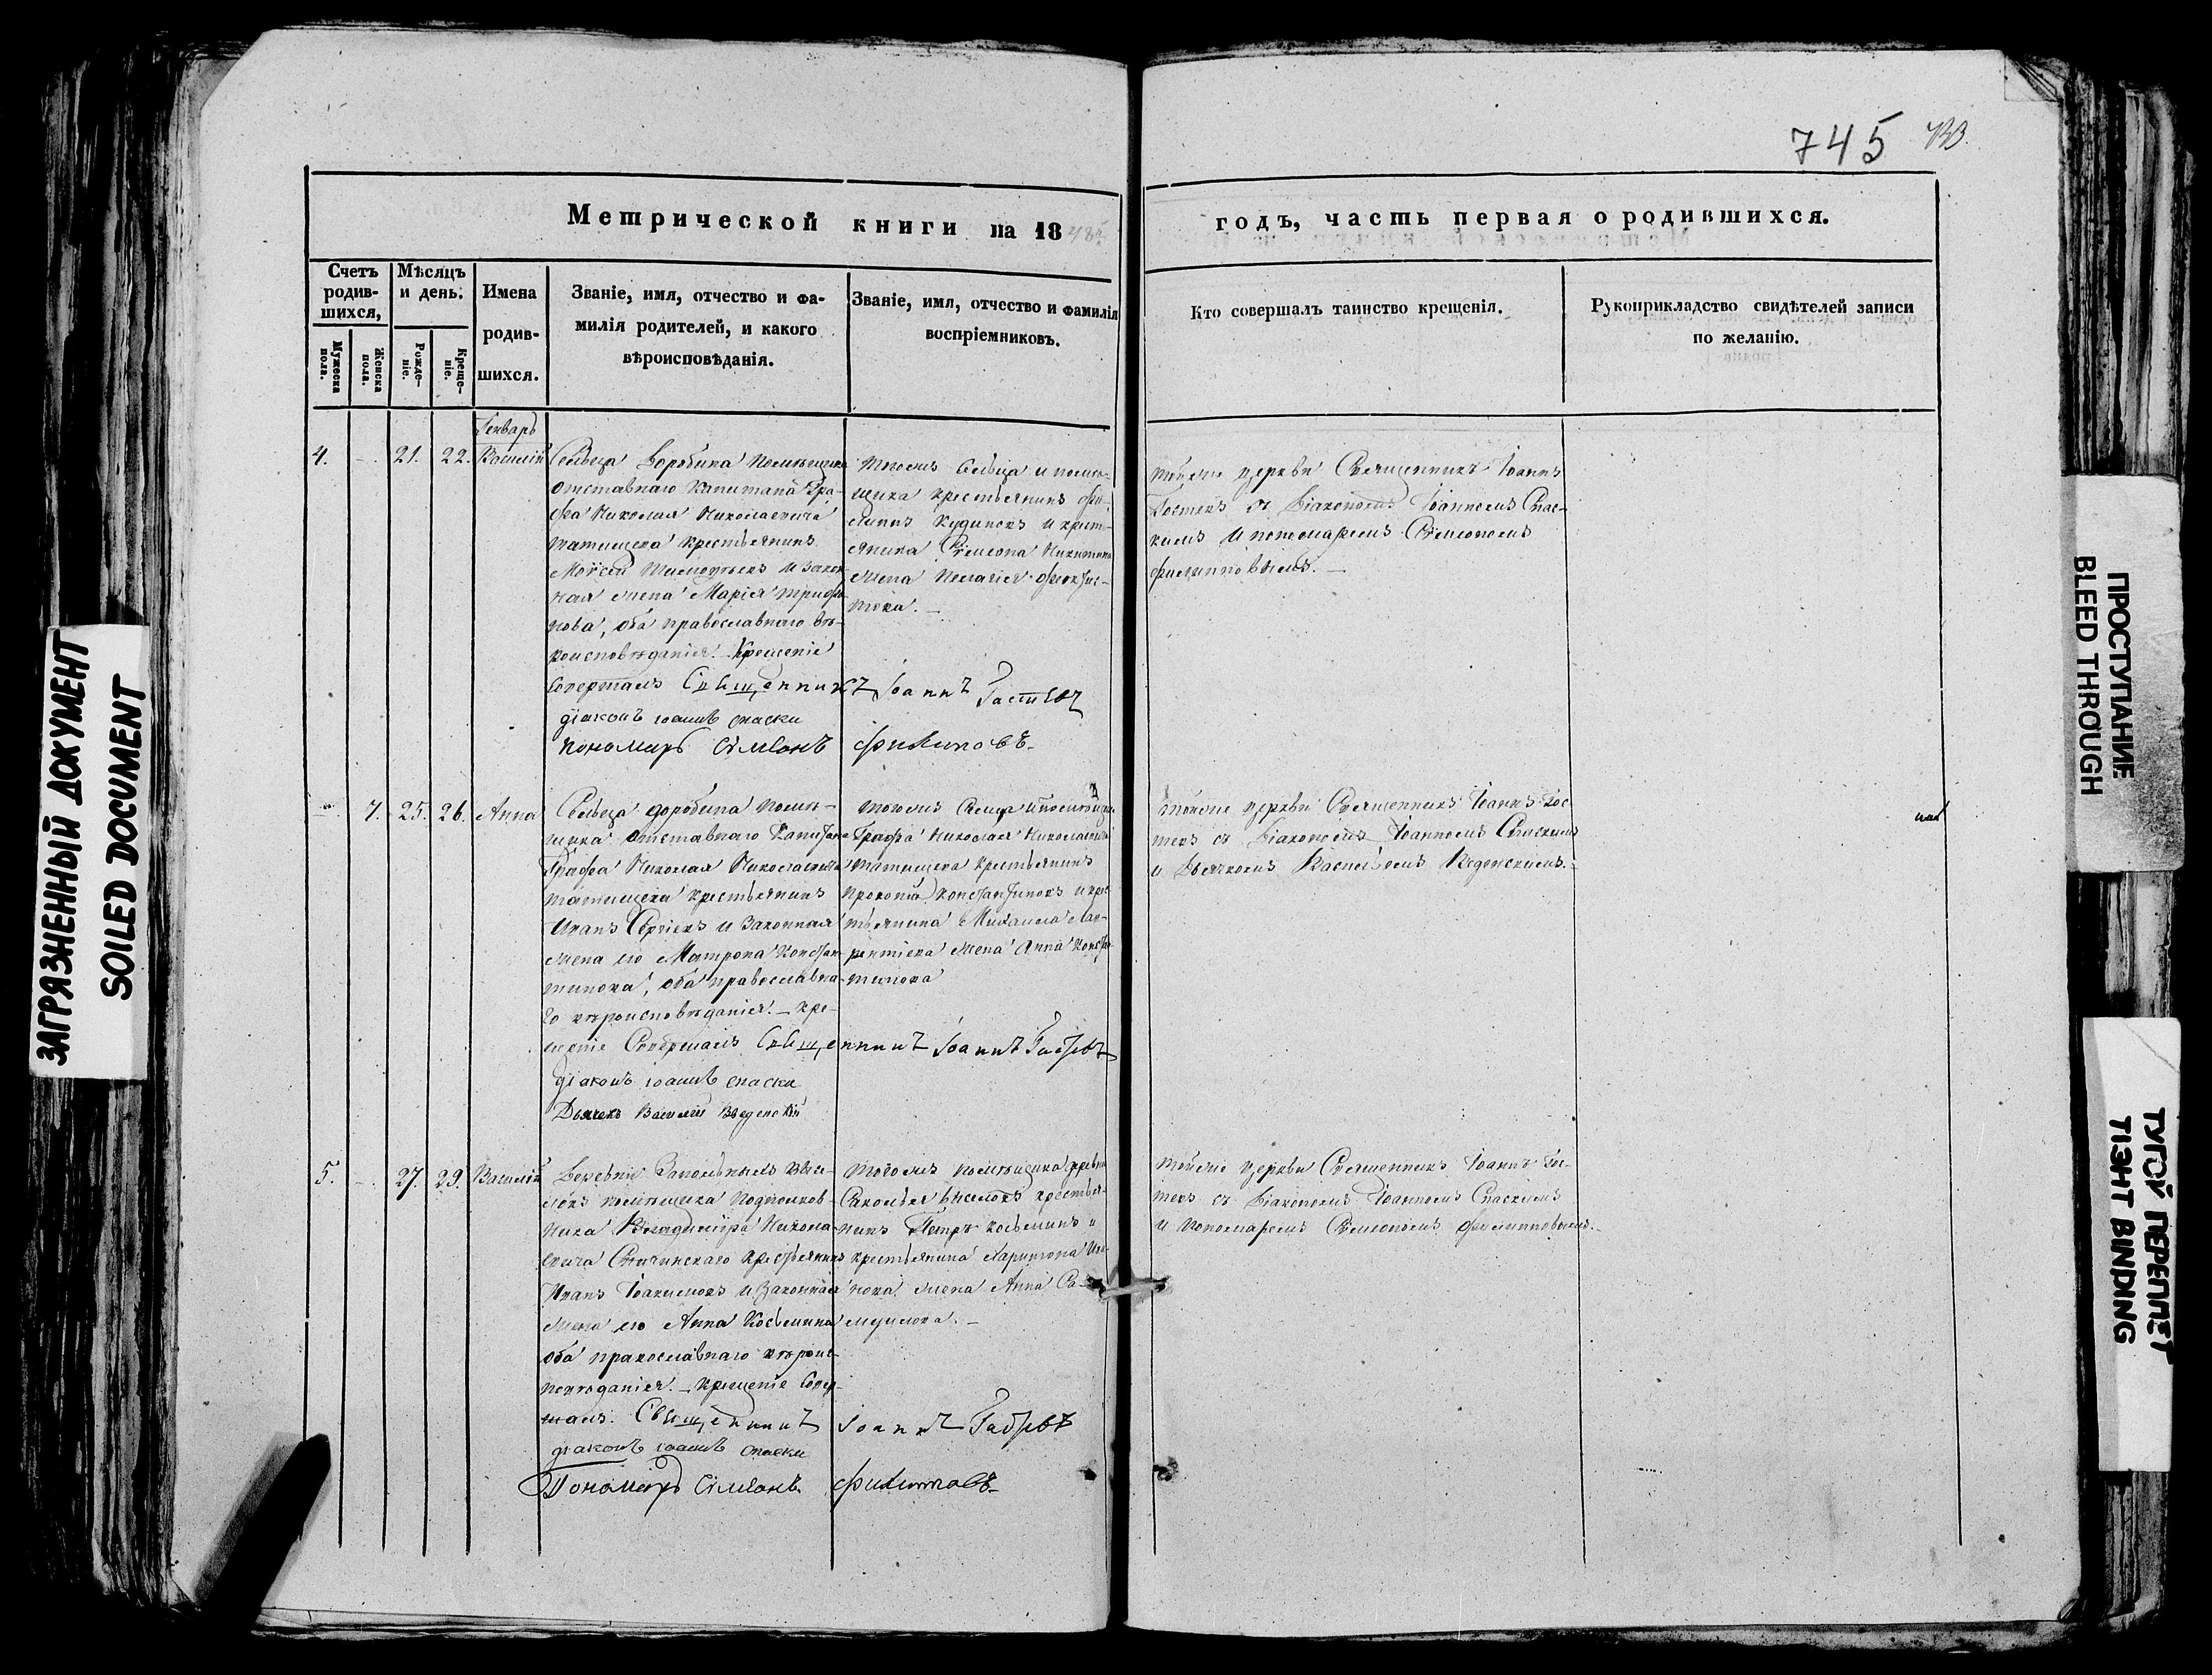 745
Метрической книги на 18
годъ, часть первая о родившихся.
Счетъ родив-
шихся,
Мужеска пола.
Женска пола.
Мѣсяцъ
и день.
Рожде-
ніе.
Креще-
ніе.
Имена
родив-
шихся.
Званіе, имя, отчество и фа-
милія родителей, и какого
вѣроисповѣданія.
Званіе, имя, отчество и фамилія
воспріемниковъ.
Кто совершалъ таинство крещенія.
Рукоприкладство свидѣтелей записи
по желанію.
Генварь
4.
21.
22.
Василій
Сельца помѣщика
отставнаго Капитана Гра-
фа Николая Николаевича
Татищева крестьянинъ
Моѵсей и закон-
ная жена Марія Трифо-
нова, оба православнаго вѣ-
роисповѣданія. Крещеніе
совершалъ Священникъ Іоаннъ
діаконъ іоаннъ спаски
пономарь Сімеонъ филиповъ.
тогожъ Сельца и помѣ-
щика крестьянинъ Фи-
липпъ и кресть-
янина Сѵмеона Никитина
жена Пелагія Феоктис-
това.
тойже церкви Священникъ Іоаннъ
съ Діакономъ Іоанномъ Спас-
кимъ и пономаремъ Сѵмеономъ
Филипповымъ.
7.
25.
26.
Анна
Сельца помѣ-
щика отставнаго Капитана
Графа Николая Николаевича
Татищева крестьянинъ
Иванъ Сергіевъ и законная
жена его Матрона Констан-
тинова, оба православна-
го вѣроисповѣданія. Кре-
щеніе Совершалъ Священникъ Іоаннъ
діаконъ іоаннъ спаски
Дьячекъ Василій Введенскій
тогожъ Сельца и помѣщика
Графа Николая Николаевича
Татищева крестьянинъ
Прокопій Константиновъ и крес-
тьянина Михаила Лав-
рентіева жена Анна Констан-
тинова
тойже церкви Священникъ Іоаннъ
съ Діакономъ Іоанномъ Спаскимъ
и Дьячкомъ Васильемъ Введенскимъ.
5.
27.
29.
Василій
Деревни высе-
локъ помѣщика Подполков-
ника Владиміра Никола-
евича крестьянинъ
Иванъ Іоакимовъ и законная
жена его Анна Косьмина
оба православнаго вѣроис-
повѣданія. Крещеніе Совер-
шалъ. Священникъ Іоаннъ
діаконъ іоаннъ спаски
Пономарь Сімеонъ филиповъ.
тогожъ помѣщика деревни
выселокъ крестья-
нинъ Петръ Косьминъ и
крестьянина Харитона Ива-
нова жена Анна Са-
муилова.
тойже церкви Священникъ Іоаннъ
съ Діакономъ Іоанномъ Спаскимъ
и Пономаремъ Сѵмеономъ Филипповымъ.
ЗАГРЯЗНЕННЫЙ ДОКУМЕНТ
SOILED DOCUMENT
ПРОСТУПАНИЕ
BLEED THROUGH
ТУГОЙ ПЕРЕПЛЕТ
TIGHT BINDING